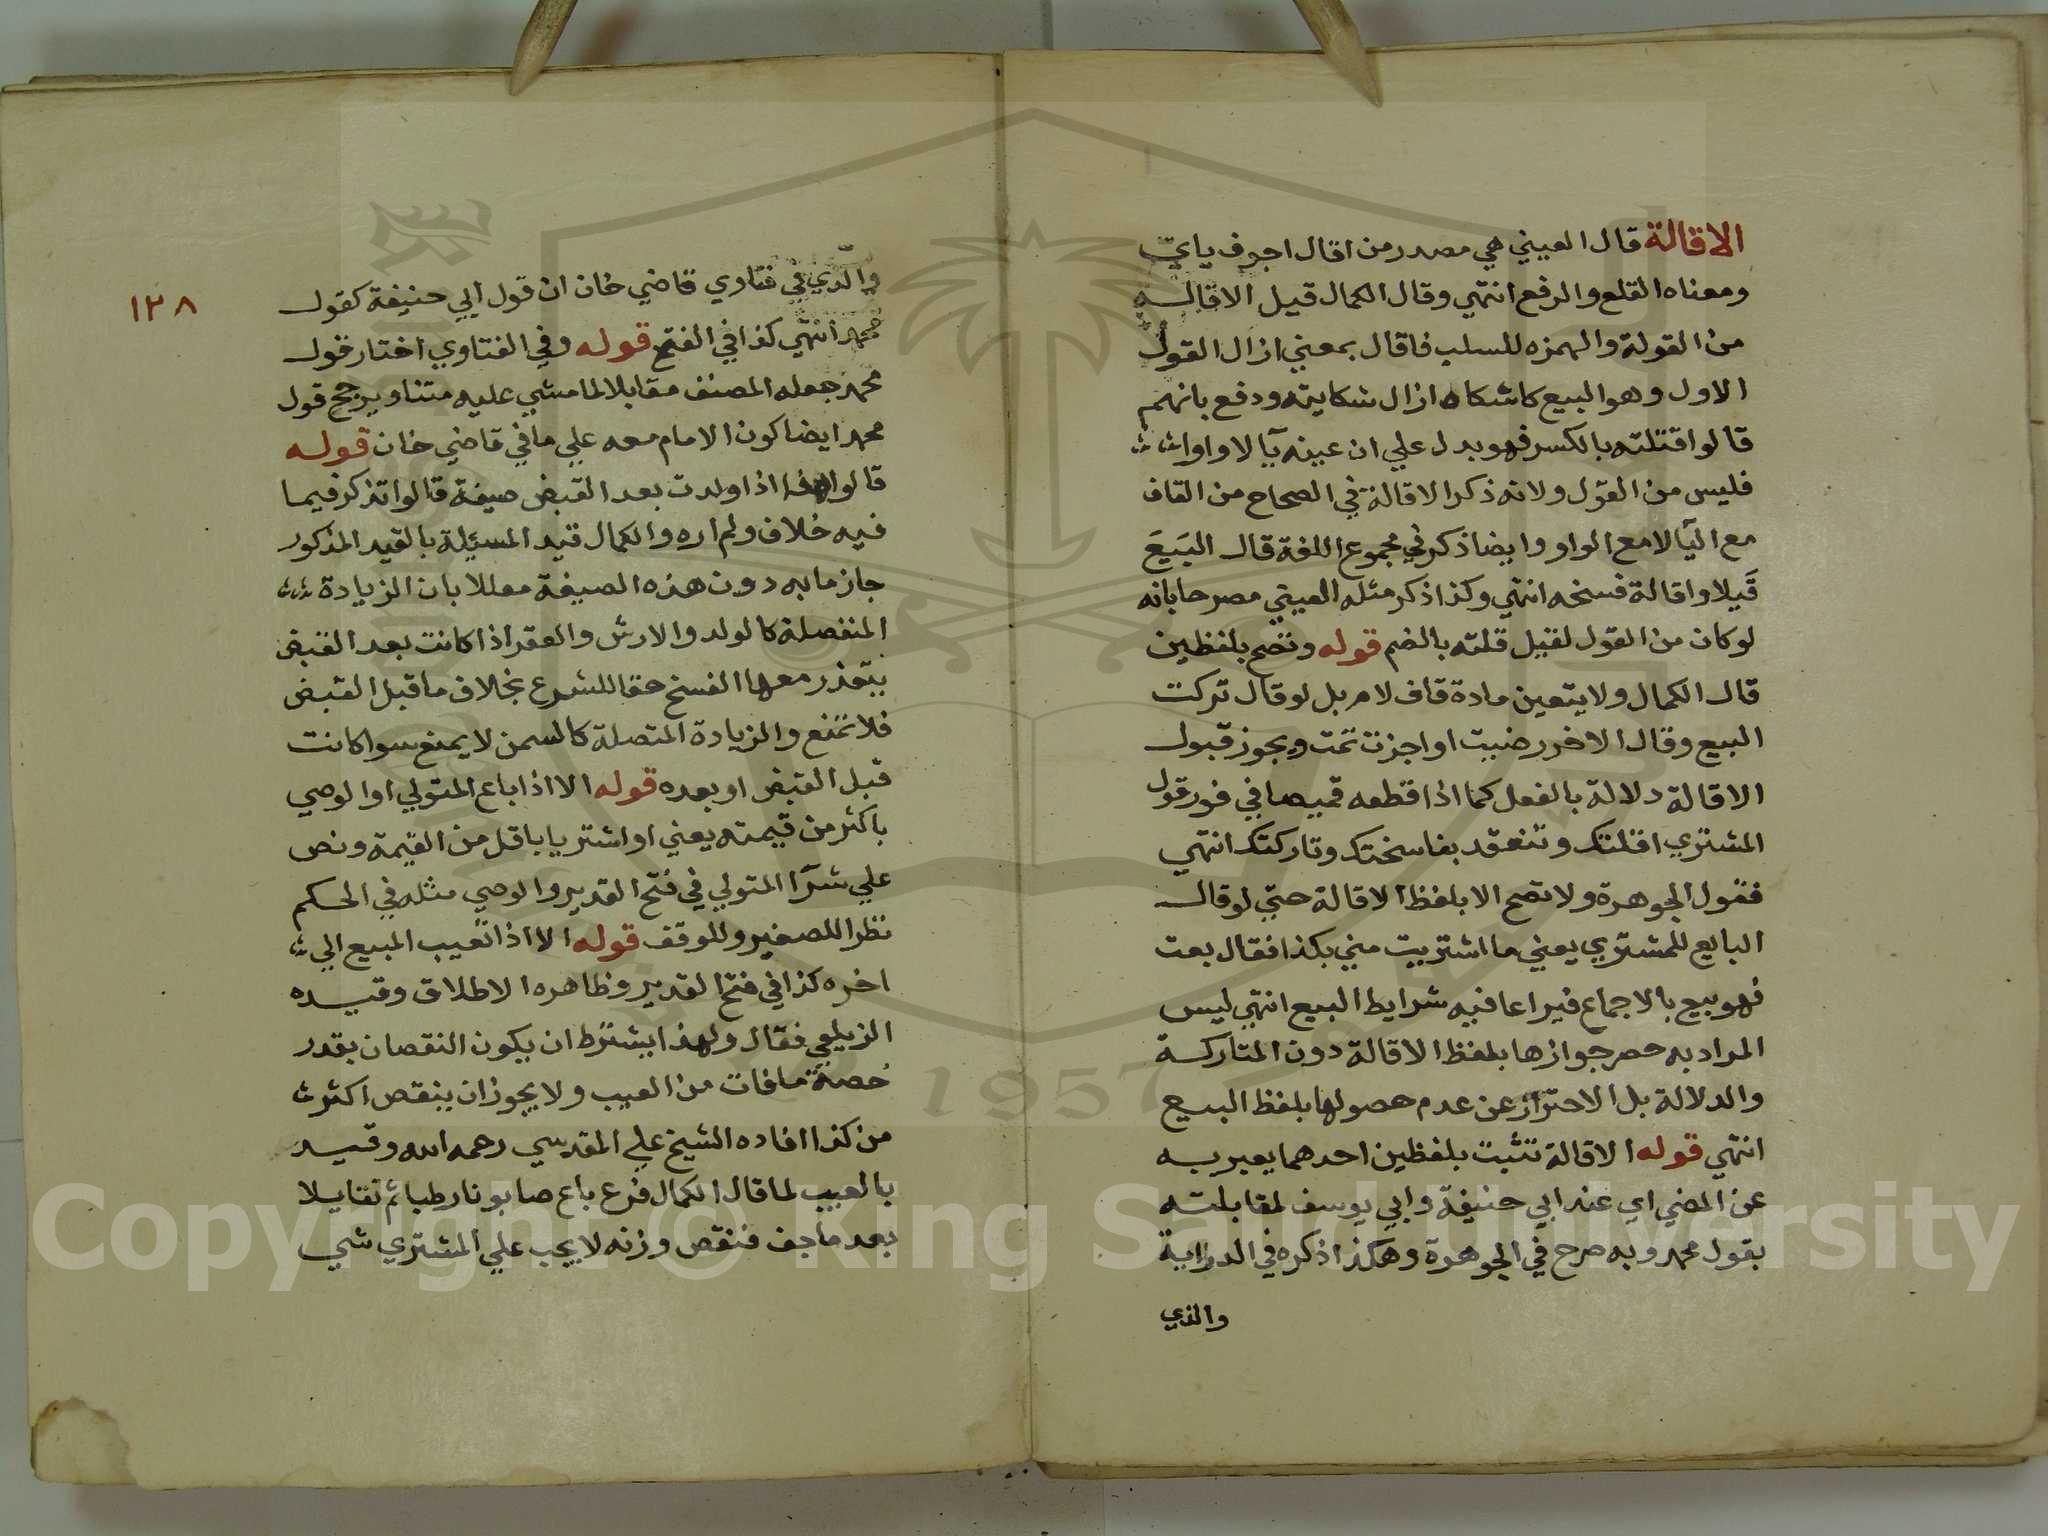 الاقالة قال العيني هي مصدر من اقال اجوف ياي
ومعناه القلع والرفع انتهي وقال الكمال قيل الاقالـه
من القولة والهمزه للسلب فاقال بمعني ازال القول
الاول وهو البيع كاشكاه ازال شكايته ودفع بانهم
قالوا قتلته بالكسر فهو يدل علي ان عينه يآ لا واوا
فليس من القول ولانه ذكر الاقالة في الصحاح من القاف
مع اليآ لا مع الواو وايضا ذكر في مجموع اللغة قال البَيعَ
قَيلا واقالة فسخه انتهي وكذا ذكر مثله العيني مصرحا بانه
لو كان من القول لقيل قلته بالضم قوله وتصح بلفظين
قال الكمال ولا يتعين مادة قاف لام بل لو قال تركت
البيع وقال الاخر رضيت او اجزت تمت ويجوز قبول
الاقالة دلالة بالفعل كما اذا قطعه قميصا في فور قول
المشتري اقلتك وتنعقد بفاسختك وتاركتك انتهي
فقول الجوهرة ولا تصح الا بلفظ الاقالة حتي لو قال
البايع للمشتري يعني ما اشتريت مني بكذا فقال بعت
فهو بيع بالاجماع فيراعا فيه شرايط البيع انتهي ليس
المراد به حصر جوازها بلفظ الاقالة دون المتاركة
والدلالة بل الاحتراز عن عدم حصولها بلفظ البيع
انتهي قوله الاقالة تثبت بلفظين احدهما يعبر بـه
عن المضي اي عند ابي حنيفة وابي يوسف لمقابلته
بقول محمد وبه صرح في الجوهرة وهكذا ذكره في الدراية
والذي
١٢٨
والذي في فتاوي قاضي خان ان قول ابي حنيفة كقول
محمد انتهي كذا في الفتح قوله وفي الفتاوي اختار قول
محمد جعله المصنف مقابلا لما مشي عليه متنا ويرجح قول
محمد ايضا كون الامام معه علي ما في قاضي خان قوله
قالوا اذا ولدت بعد القبض صيغة قالوا تذكر فيما
فيه خلاف ولم اره والكمال قيد المسيلة بالقيد المذكور
جازما به دون هذه الصيغة معللا بان الزيادة
المنفصلة كالولد والارش والعقر اذا كانت بعد القبض
يتعذر معها الفسخ حقا للشرع بخلاف ما قبل القبض
فلا تمنع والزيادة المتصلة كالسمن لا يمنع سوا كانت
قبل القبض او بعده قوله الا اذا باع المتولي او الوصي
باكثر من قيمته يعني او اشتريا باقل من القيمة ونص
علي شرآ المتولي في فتح القدير والوصي مثله في الحكم
نظرا للصغير وللوقف قوله الا اذا تعيب المبيع الي
اخره كذا في فتح القدير وظاهره الاطلاق وقيـده
الزيلعي فقال ولهذا يشترط ان يكون النقصان بقدر
حصة ما فات من العيب ولا يجوز ان ينقص اكثر
من كذا افاده الشيخ علي المقدسي رحمه الله وقيـد
بالعيب لما قال الكمال فرع باع صابونا رطبا ثم تقايلا
بعد ما جف فنقص وزنه لا يجب علي المشتري شي
Copyright © King Saud University
1957